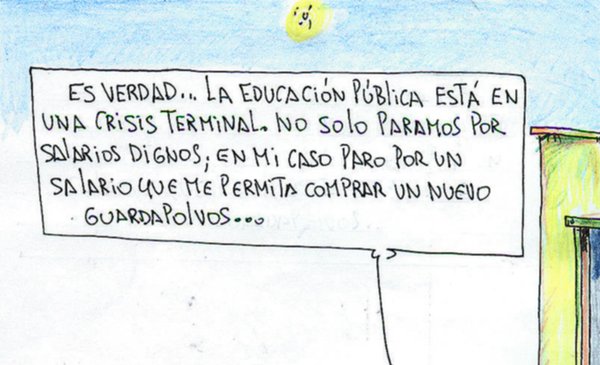 ES VERDAD... LA EDUCACIÓN PÚBLICA ESTÁ EN
UNA CRISIS TERMINAL. NO SOLO PARAMOS POR
SALARIOS DIGNOS; EN MI CASO PARO POR UN
SALARIO QUE ME PERMITA COMPRAR UN NUEVO
GUARDAPOLVOS...